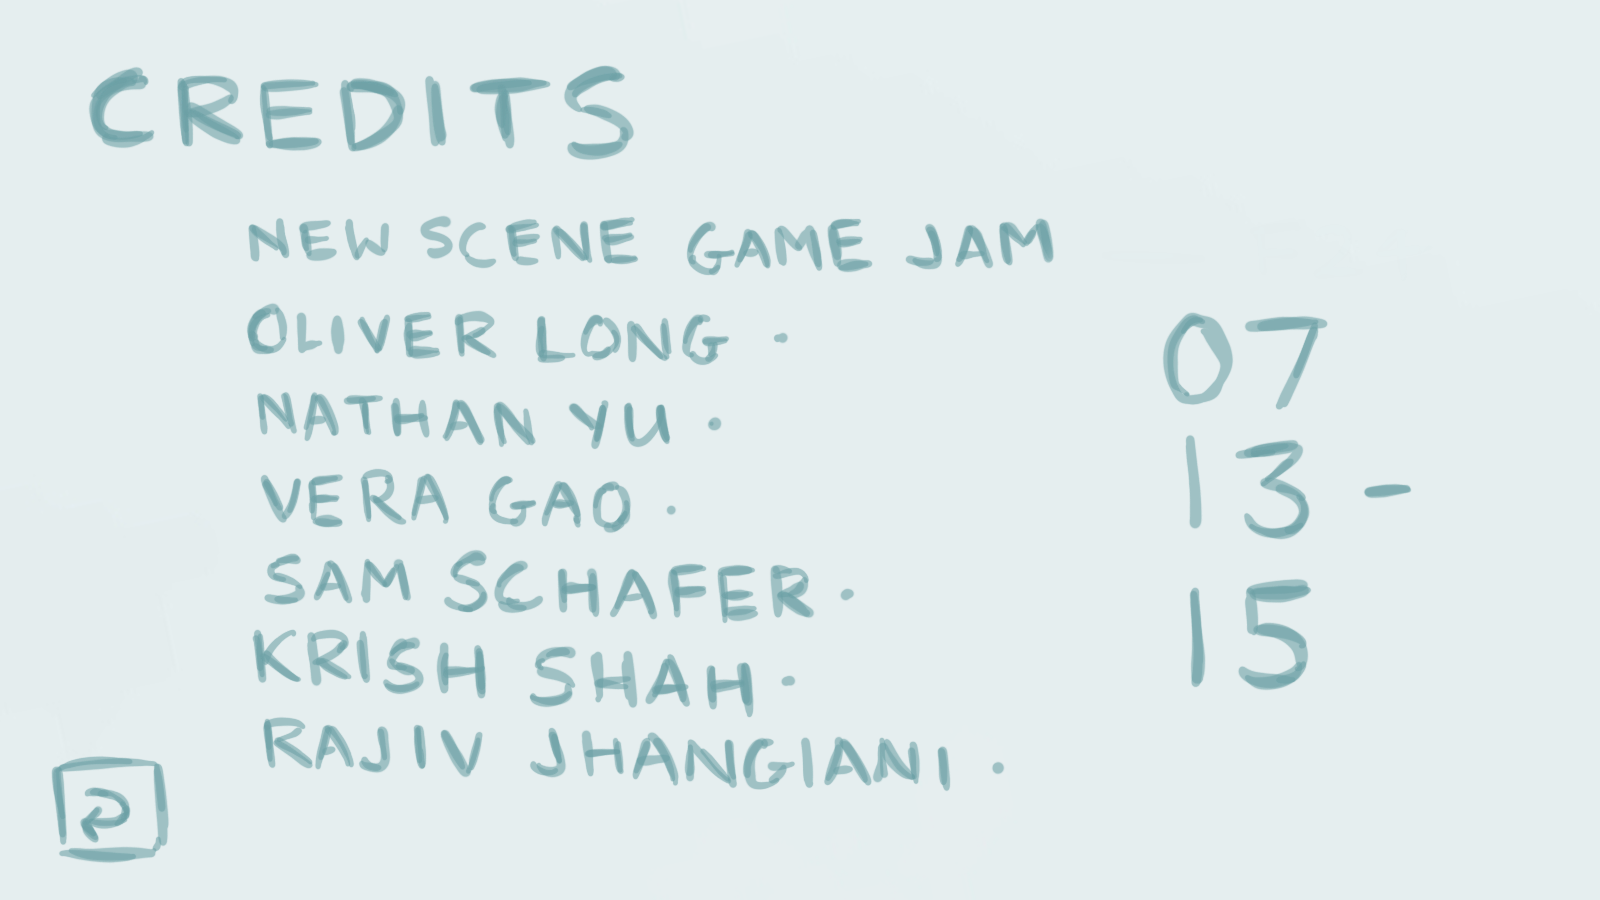 CREDITS
NEW SCENE GAME JAM
OLIVER LONG ·
NATHAN YU ·
VERA GAO ·
SAM SCHAFER ·
KRISH SHAH ·
RAJIV JHANGIANI ·
07
13 -
15